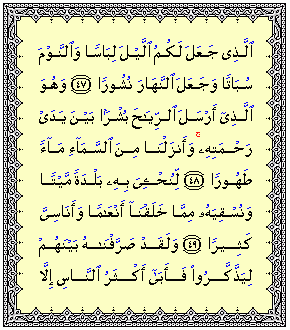 ٱلَّذِى جَعَلَ لَكُمُ ٱلَّيْلَ لِبَاسًا وَٱلنَّوْمَ
سُبَاتًا وَجَعَلَ ٱلنَّهَارَ نُشُورًا ٤٧ وَهُوَ
ٱلَّذِىٓ أَرْسَلَ ٱلرِّيَـٰحَ بُشْرًۢا بَيْنَ يَدَىْ
رَحْمَتِهِۦ ۚ وَأَنزَلْنَا مِنَ ٱلسَّمَآءِ مَآءً
طَهُورًا ٤٨ لِّنُحْـِۧىَ بِهِۦ بَلْدَةً مَّيْتًا
وَنُسْقِيَهُۥ مِمَّا خَلَقْنَآ أَنْعَـٰمًا وَأَنَاسِىَّ
كَثِيرًا ٤٩ وَلَقَدْ صَرَّفْنَـٰهُ بَيْنَهُمْ
لِيَذَّكَّرُوا۟ فَأَبَىٰٓ أَكْثَرُ ٱلنَّاسِ إِلَّا